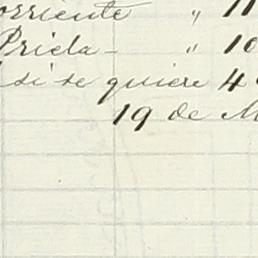 orriente " 11
Priela - " 10
si se quiere 4
19 de M